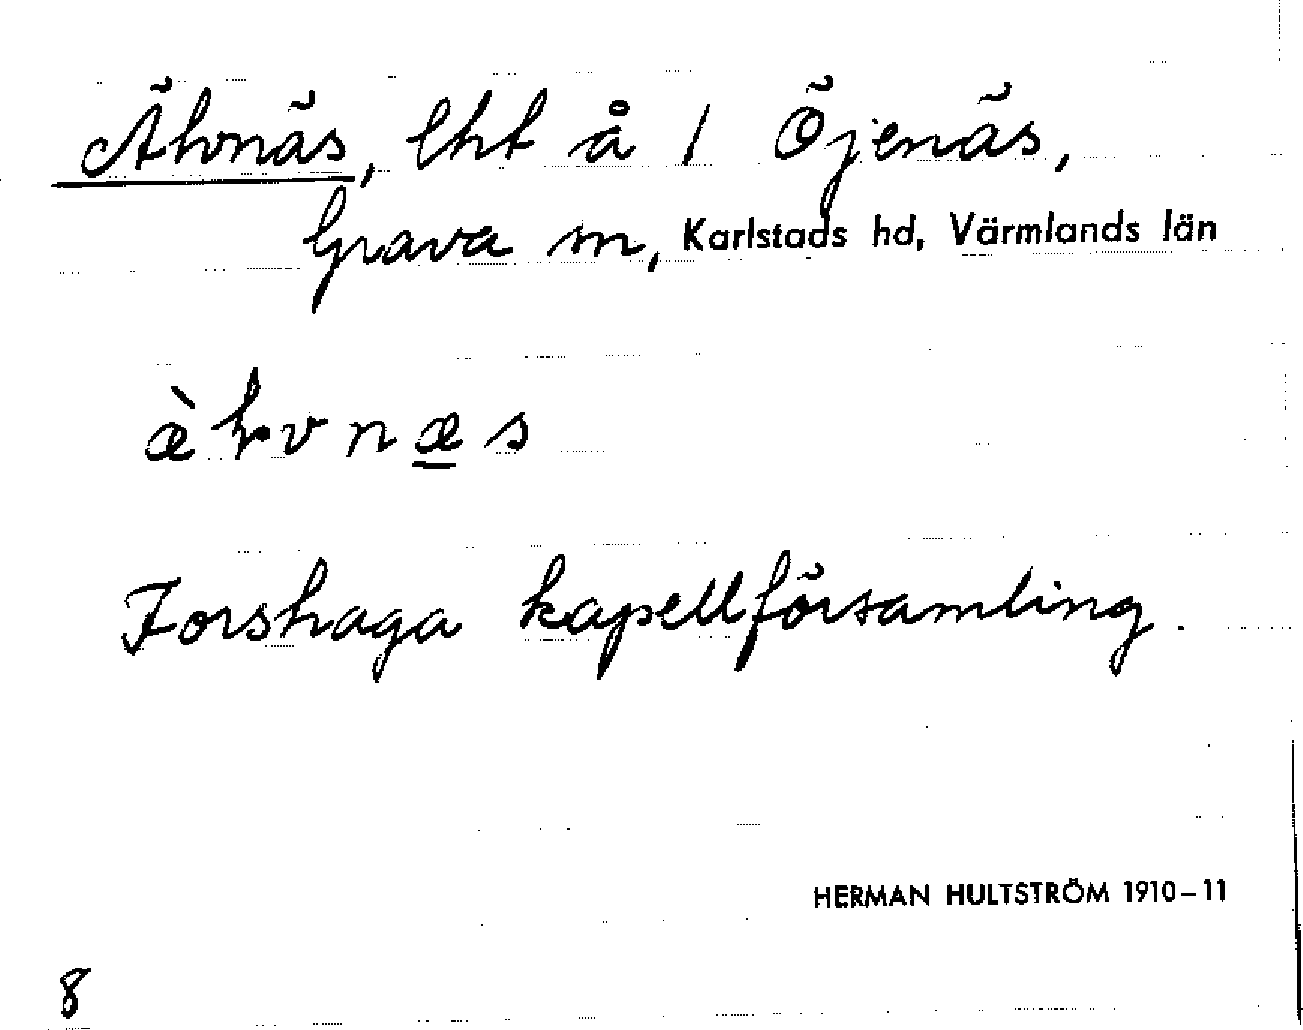 Älvnäs, lht å 1 Öjenäs,
Grava sn, Karlstads hd, Värmlands län
æ̀ ł v n æ̲ s
Forshaga kapellförsamling.
HERMAN HULTSTRÖM 1910–11
8